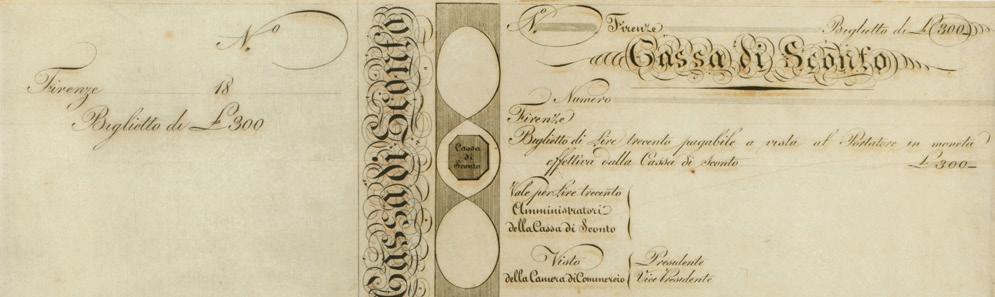 Nº
Firenze 18
Biglietto di £300
Cassa di Sconto
Cassa
di
Sconto
Nº Firenze Biglietto di £(300)
Cassa di Sconto
Numero
Firenze
Biglietto di Lire trecento pagabile a vista al Portatore in moneta
effettiva dalla Cassa di Sconto £300
Vale per Lire trecento
Amministratori
della Cassa di Sconto
Visto
della Camera di Commercio
Presidente
Vice Presidente